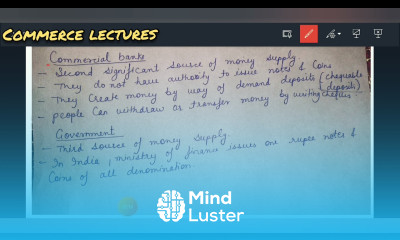 COMMERCE LECTURES
Commercial banks
- Second significant source of money supply
- They do not have authority to issue notes & coins
- They create money by way of demand deposits (chequable deposits)
- people can withdraw or transfer money by writing cheques
Government
- Third source of money supply
- In India, ministry of finance issues one rupee notes &
coins of all denomination.
Mind
Luster